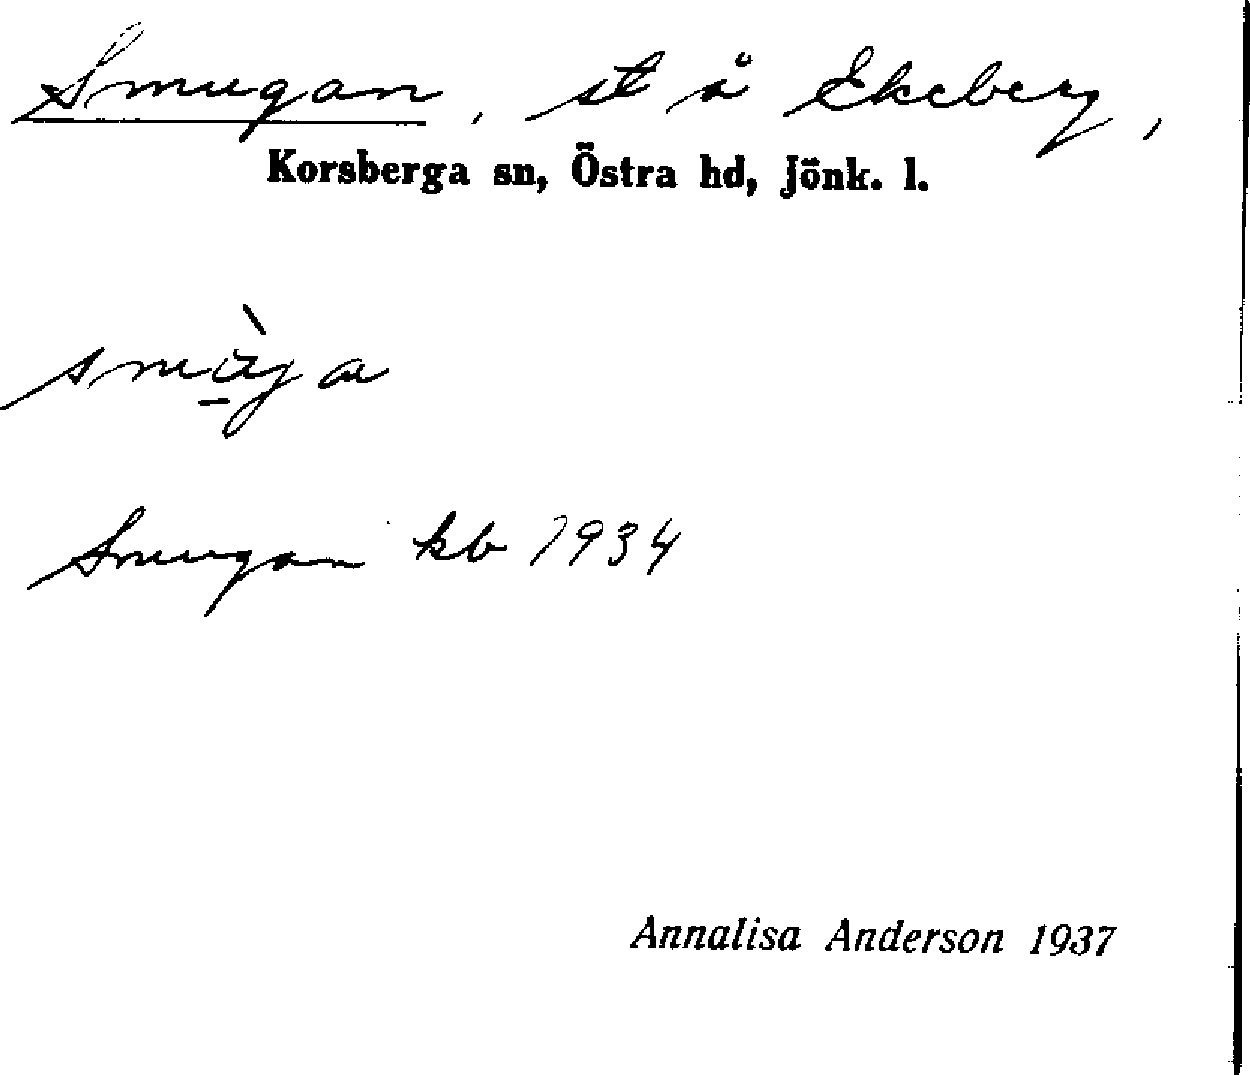 Smugan, st å Ekeberg,
Korsberga sn, Östra hd, Jönk. l.
Smugan kb 1934
Annalisa Anderson 1937